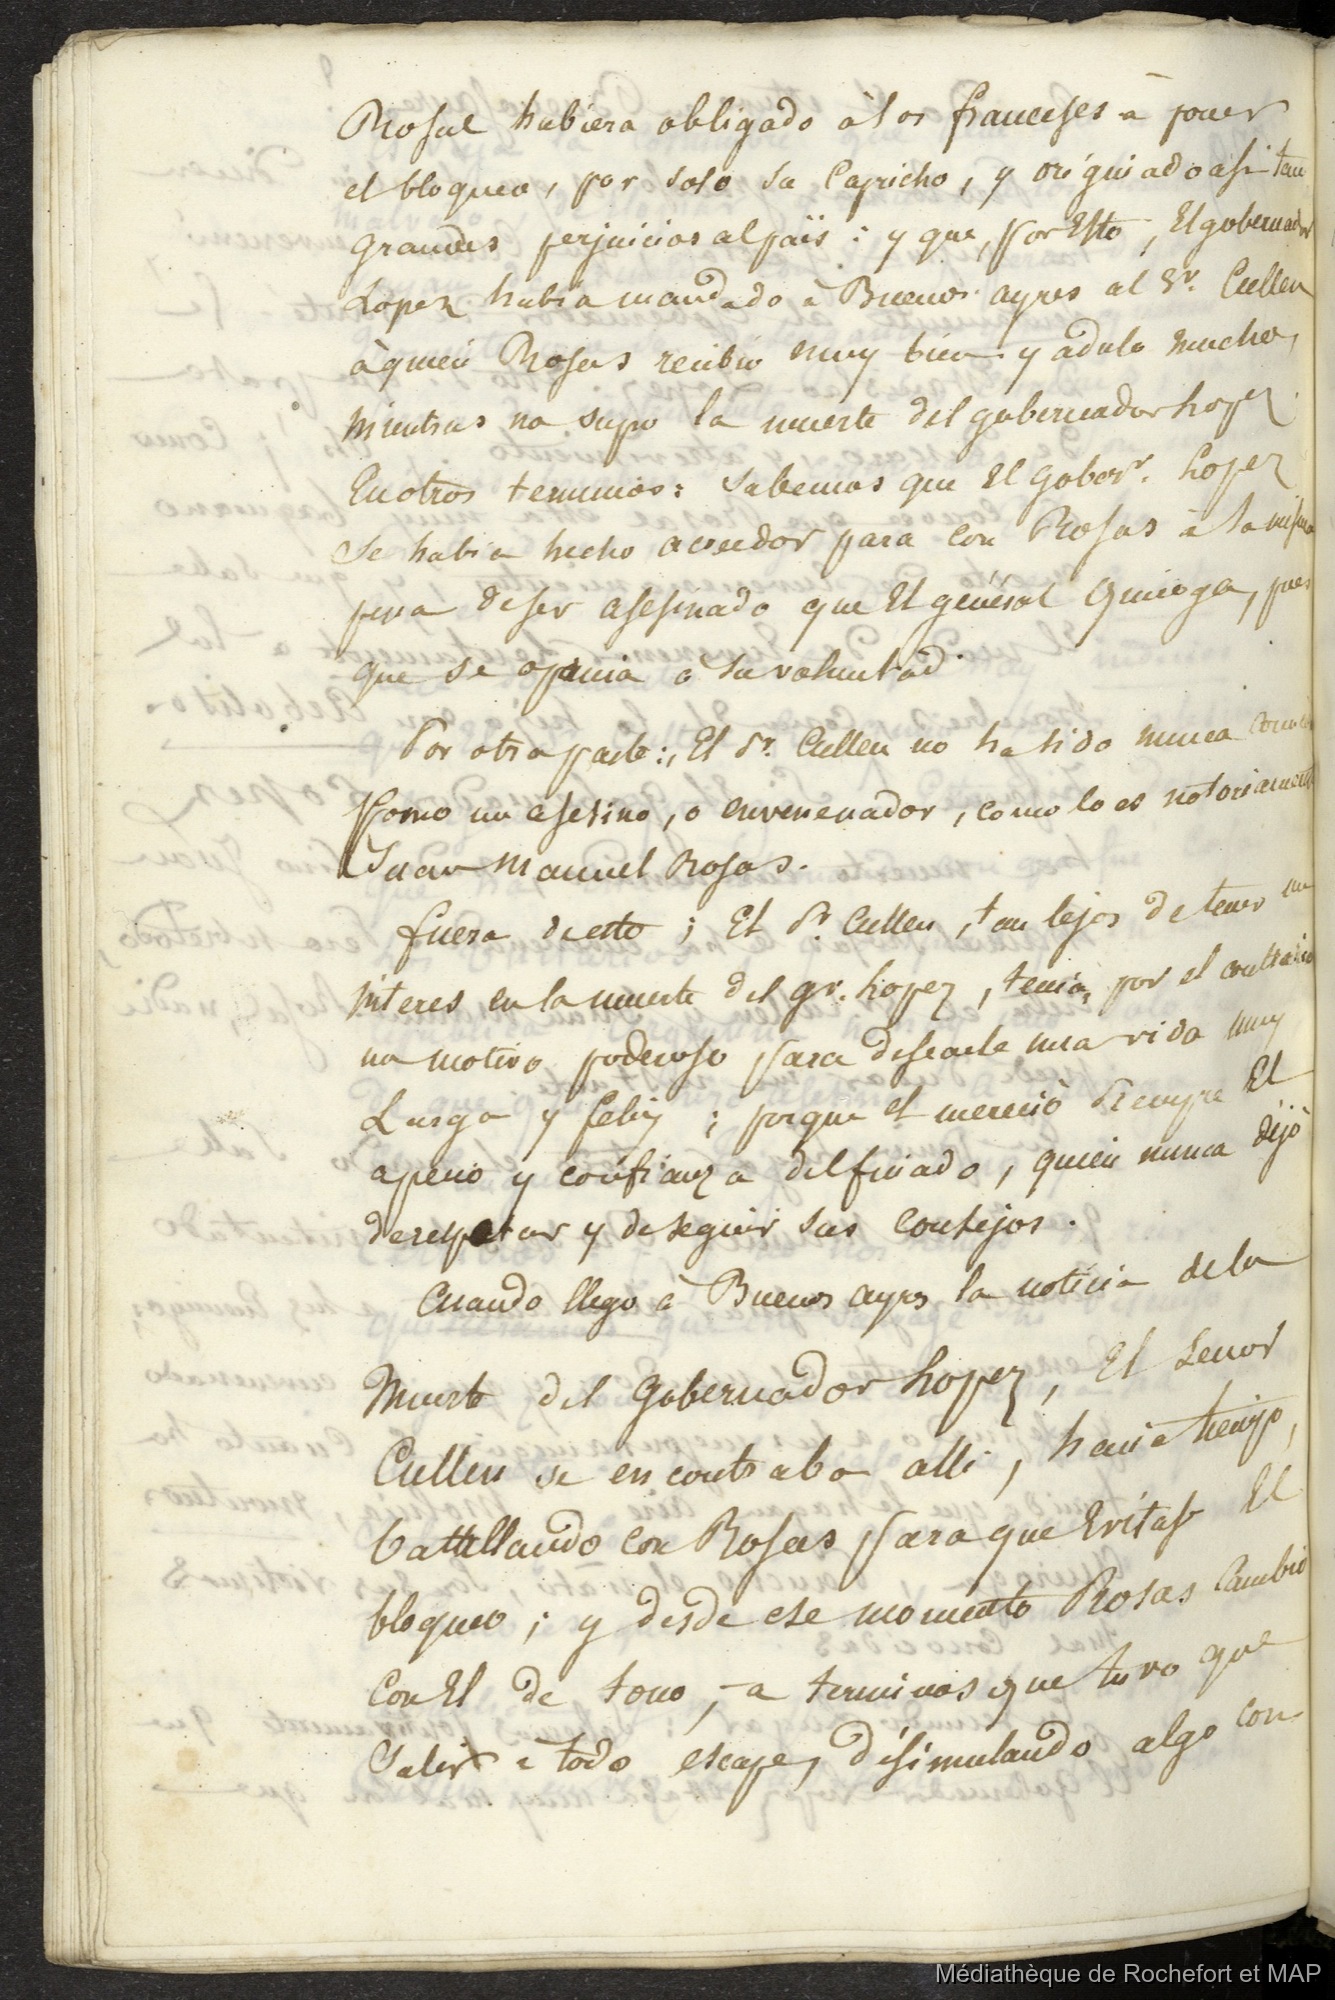 Rosas hubiera obligado à los franceses a poner
el bloqueo, por solo su Capricho, y originiado asi tan
grandes perjuicios al païs : y que, por Esto, El gobernador
Lopez habia mandado à Buenos ayres al Sr. Cullen
à quien Rosas recibio muy bien y adulo mucho,
mientras no supo la muerte del gobernador Lopez.
En otros terminos: Sabemos que El gobor. Lopez
se habia hecho acreedor para con Rosas à la misma
pena de ser asesinado que El général Quiroga, pues
que se oponia a su voluntad.
Por otra parte:, El Sr. Cullen no ha sido nunca
como un asesino, o envenenador, como lo es notoriamente
Juan Manuel Rosas.
fuera de esto ; El Sr. Cullen, tan lejos de tener un
interes en la muerte del gr. Lopez, tenia, por el contrario
un motivo poderoso para desearle una vida muy
Larga y feliz ; porque el mereciò siempre El
apecio y confianza del finado, quien nunca dijò
de respetar y de seguir sus Consejos.
Cuando llego à Buenos ayres la noticia de la
Muerte del Gobernador Lopez, El Senor
Cullen se encontraba alli, hacia tiempo,
batallando con Rosas para que Evitase El
bloqueo ; y desde ese momento Rosas Cambio
Con El de tono, a terminos que tuvo que
Salir a todo escape, disimulando algo con
Médiathèque de Rochefort et MAP